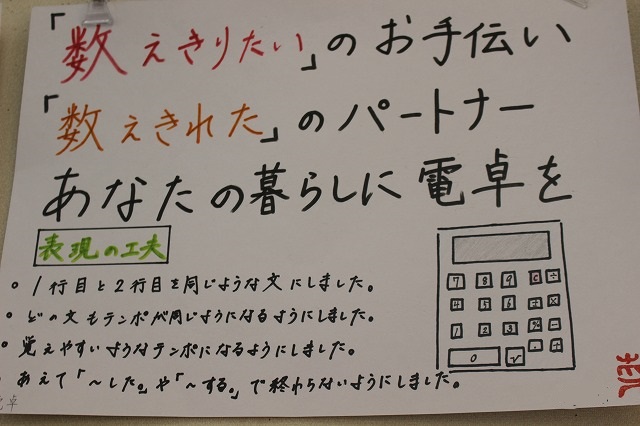 「数えきりたい」のお手伝い
「数えきれた」のパートナー
あなたの暮らしに電卓を
表現の工夫
。1行目と2行目を同じような文にしました。
。どの文もテンポが同じようになるようにしました。
。覚えやすいようなテンポになるようにしました。
。あえて「〜した。」や「〜する。」で終わらないようにしました。
7 8 9 C ÷
4 5 6 + ×
1 2 3 % −
0 √ − +
電卓